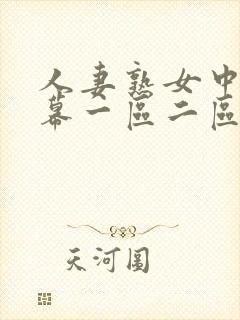 人妻熟女中
幕一區二區
天河圓